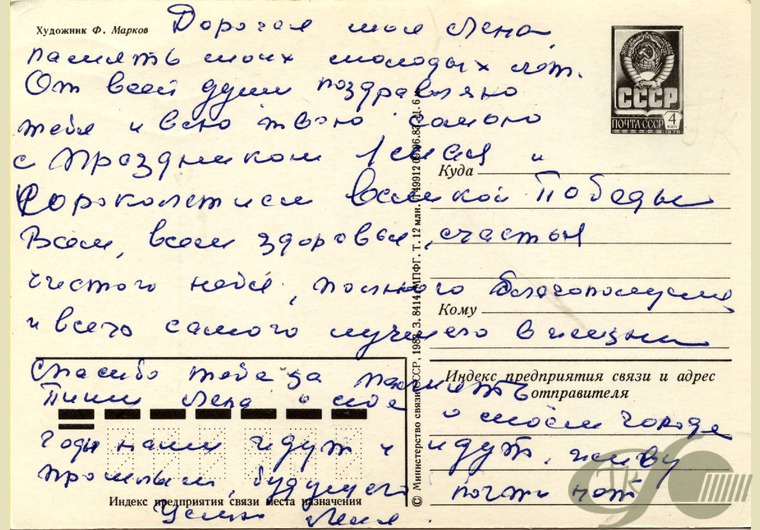 Художник Ф. Марков
Дорогая моя Лена,
память моих молодых лет.
От всей души поздравляю
тебя и всю твою семью
с праздником 1 мая и
сороколетием великой Победы
Всем, всем здоровья, счастья
чистого неба, полного благополучия
и всего самого лучшего в жизни
Спасибо тебе за память
Пиши Лена о
о моём городе
Годы наши идут и идут, живу
прошлым, будущего почти нет
Целую Лена.
СССР
ПОЧТА СССР 4
1976
Куда
Кому
Индекс предприятия связи и адрес
отправителя
Индекс предприятия связи места назначения
© Министерство связи СССР, З. 8414. МПФГ. Т. 12 млн.